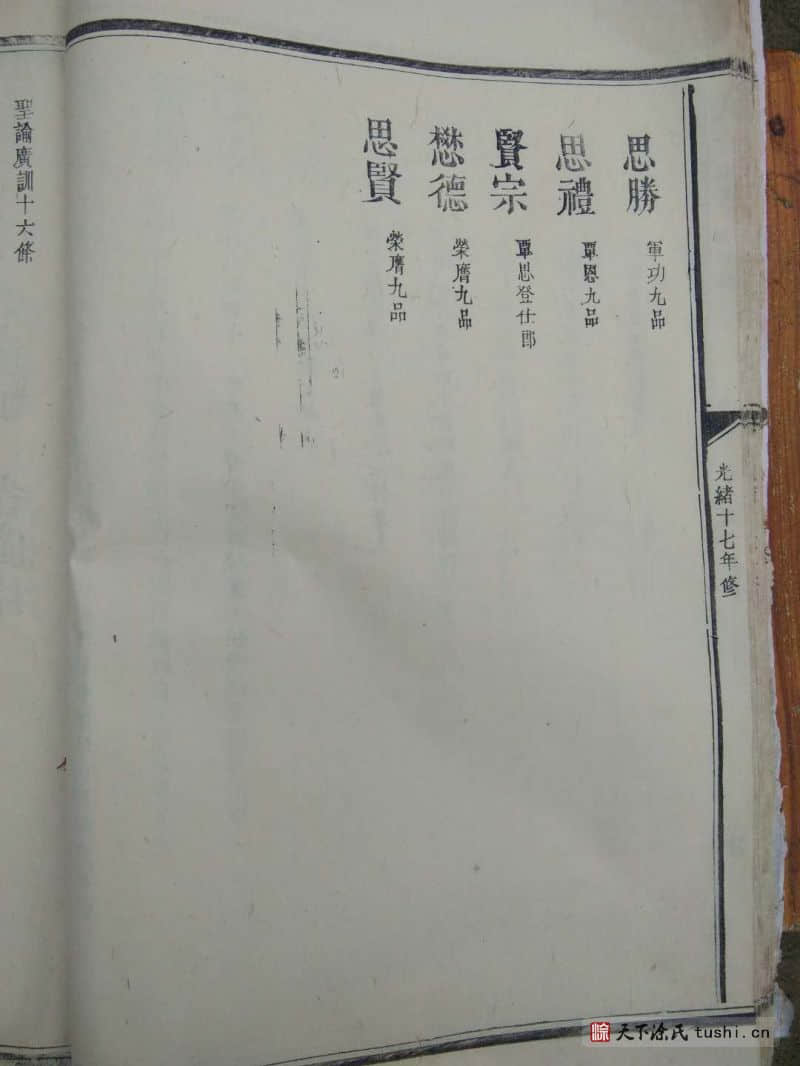 光緒十七年修
思勝 軍功九品
思禮 覃恩九品
賢宗 覃思登仕郎
懋德 榮膺九品
思賢 榮膺九品
聖諭廣訓十六條
天下涂氏 tushi.cn